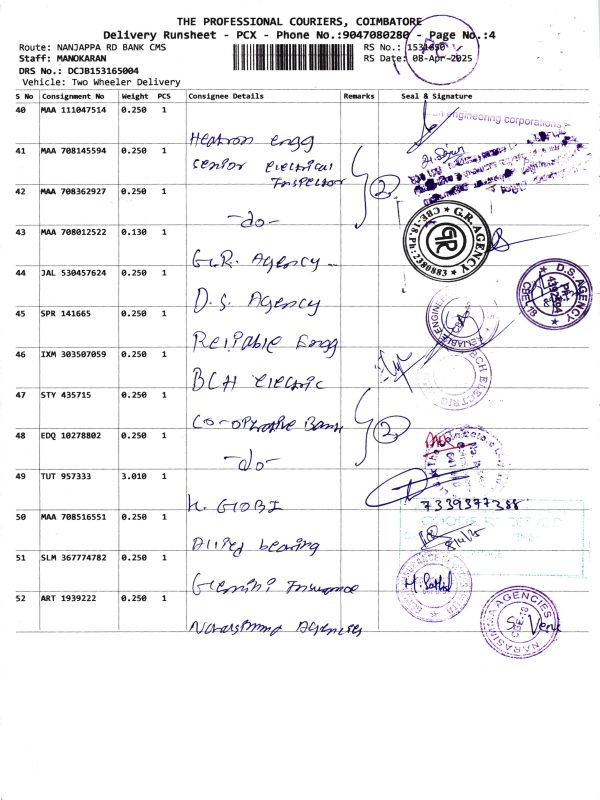 THE PROFESSIONAL COURIERS, COIMBATORE
Delivery Runsheet - PCX - Phone No.:9047080280 - Page No.:4
Route: NANJAPPA RD BANK CMS
RS No.: 1531650
Staff: MANOKARAN
RS Date: 08-Apr-2025
DRS No.: DCJB153165004
Vehicle: Two Wheeler Delivery
S No Consignment No Weight PCS Consignee Details Remarks Seal & Signature
40 MAA 111047514 0.250 1
Heatron engg
engineering corporation
41 MAA 708145594 0.250 1
Senior Electrical
Inspector
2
42 MAA 708362927 0.250 1
-do-
43 MAA 708012522 0.130 1
G.R. Agency
G.R. AGENCY
CBE-18. Ph: 2380883
GR
44 JAL 530457624 0.250 1
D.S. Agency
D.S. AGENCY
45 SPR 141665 0.250 1
Reliable Engg
RELIABLE ENGINEER
46 IXM 303507059 0.250 1
BCH Electric
BCH ELECTRIC
47 STY 435715 0.250 1
Co-operative Bank
2
48 EDQ 10278802 0.250 1
-do-
49 TUT 957333 3.010 1
K. GOBI
7339377388
50 MAA 708516551 0.250 1
Allied bearing
51 SLM 367774782 0.250 1
Gemini Insurance
52 ART 1939222 0.250 1
Narasimma Agencies
NARASIMMA AGENCIES